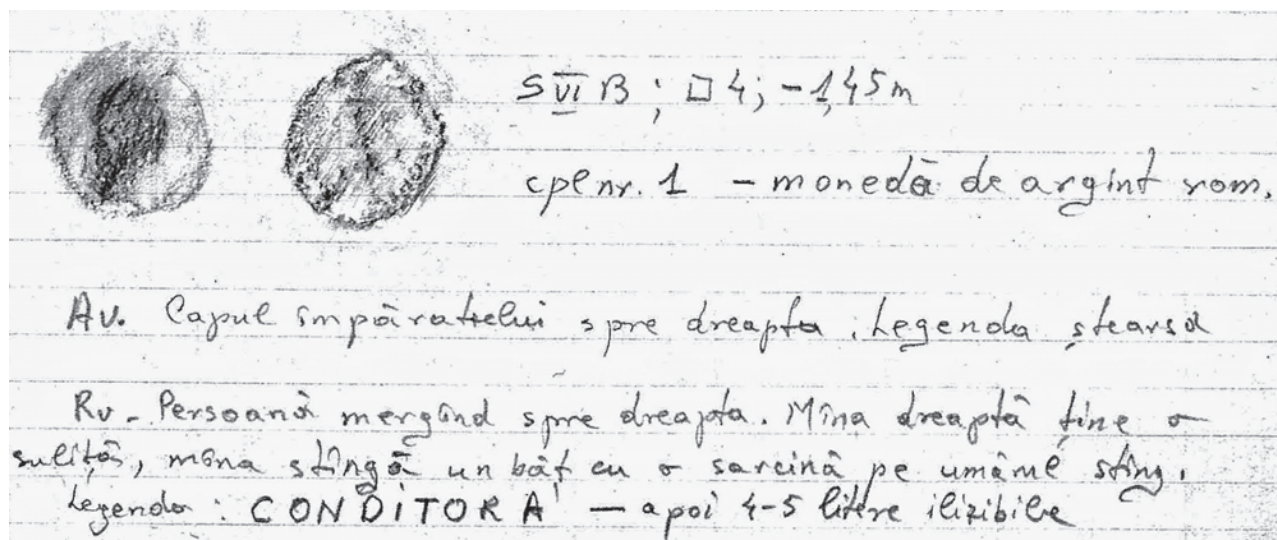 S VI B ; □ 4; - 1,45 m
cpl nr. 1 - monedă de argint rom.
Av. Capul împăratului spre dreapta. Legenda ștearsă
Rv - Persoană mergînd spre dreapta. Mîna dreaptă ține o
suliță, mîna stîngă un băț cu o sarcină pe umărul stîng.
Legenda : CONDITOR A - apoi 4-5 litere ilizibile